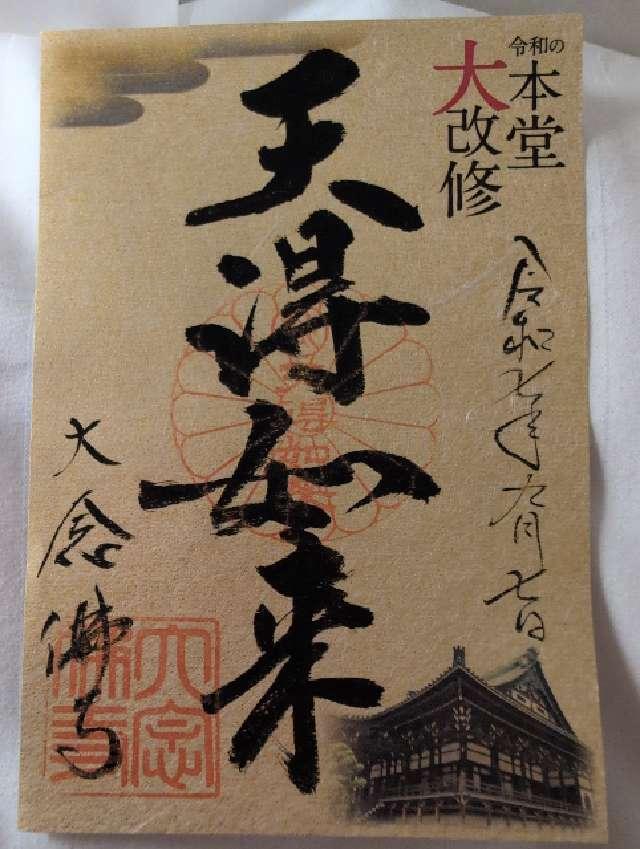 令和の
本堂
大改修
令和七年九月七日
天得如来
大念佛寺
大念
佛寺